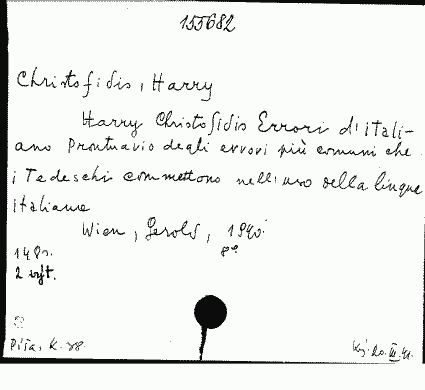 155682
Christofidis, Harry
Harry Christofidis Errori d'itali-
ano Prontuario degli errori più comuni che
i Tedeschi commettono nell'uso della lingua
italiana
Wien, Gerold, 1940.
8°
2
Pita, K.
20. III. 41.